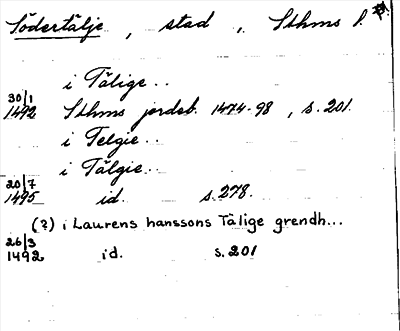 Södertälje, stad, Sthms l.
i Tälige..
30/1
1492 Sthms jordeb. 1474-98, s. 201.
i Telgie..
i Tälgie..
20/7
1495 id. s. 278.
(?) i Laurens hanssons Tälige grendh...
26/3
1492 id. s. 201